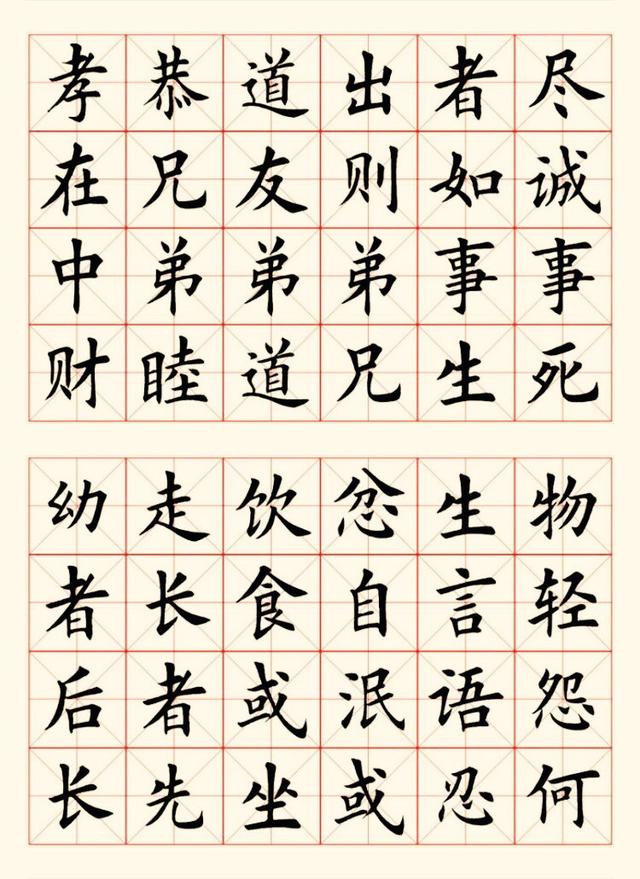 尽诚事死
者如事生
出则弟兄
道友弟道
恭兄弟睦
孝在中财
物轻怨何
生言语忍
忿自泯或
饮食或坐
走长者先
幼者后长